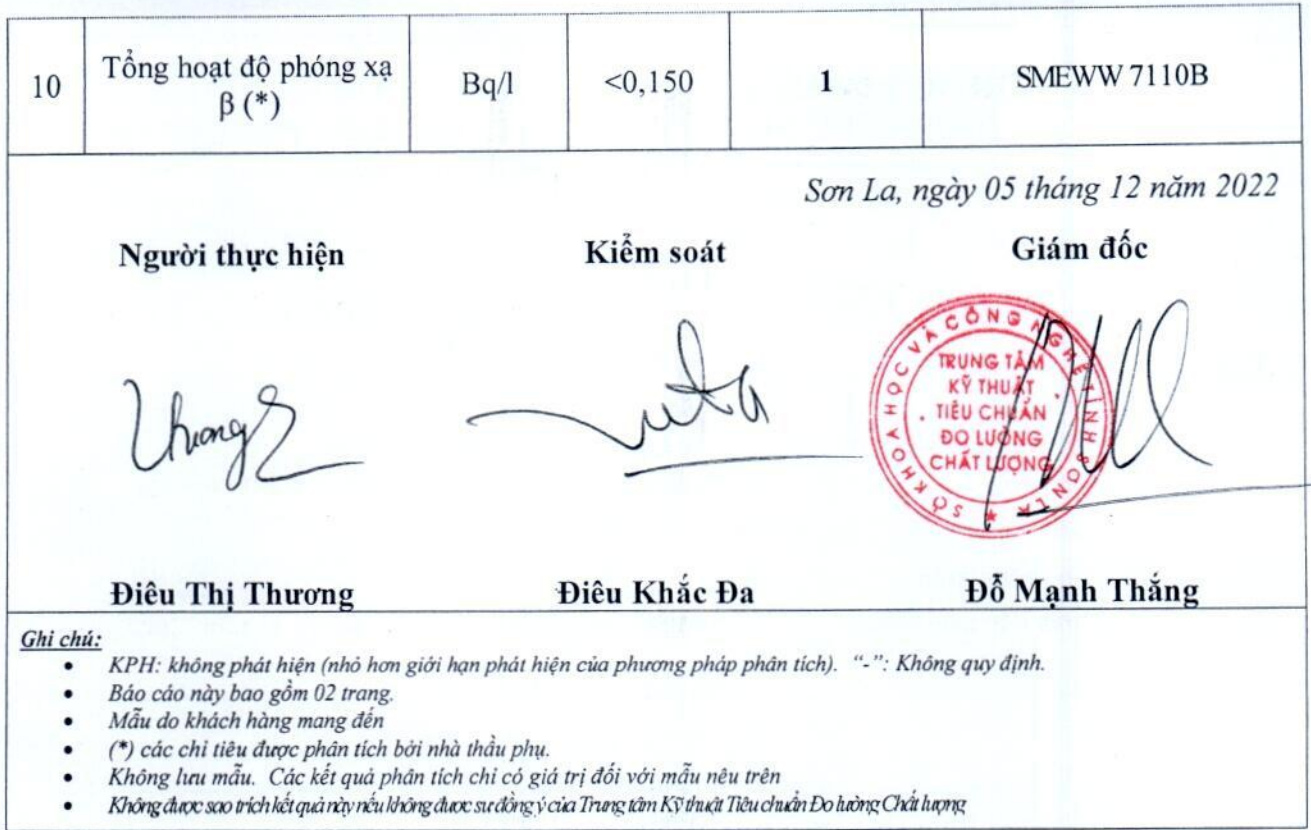 10 Tổng hoạt độ phóng xạ β (*) Bq/l <0,150 1 SMEWW 7110B
Sơn La, ngày 05 tháng 12 năm 2022
Người thực hiện Kiểm soát Giám đốc
SỞ KHOA HỌC VÀ CÔNG NGHỆ TỈNH SƠN LA
TRUNG TÂM
KỸ THUẬT
TIÊU CHUẨN
ĐO LƯỜNG
CHẤT LƯỢNG
Thương
Điêu Thị Thương Điêu Khắc Đa Đỗ Mạnh Thắng
Ghi chú:
• KPH: không phát hiện (nhỏ hơn giới hạn phát hiện của phương pháp phân tích). “-”: Không quy định.
• Báo cáo này bao gồm 02 trang.
• Mẫu do khách hàng mang đến
• (*) các chỉ tiêu được phân tích bởi nhà thầu phụ.
• Không lưu mẫu. Các kết quả phân tích chỉ có giá trị đối với mẫu nêu trên
• Không được sao trích kết quả này nếu không được sự đồng ý của Trung tâm Kỹ thuật Tiêu chuẩn Đo lường Chất lượng